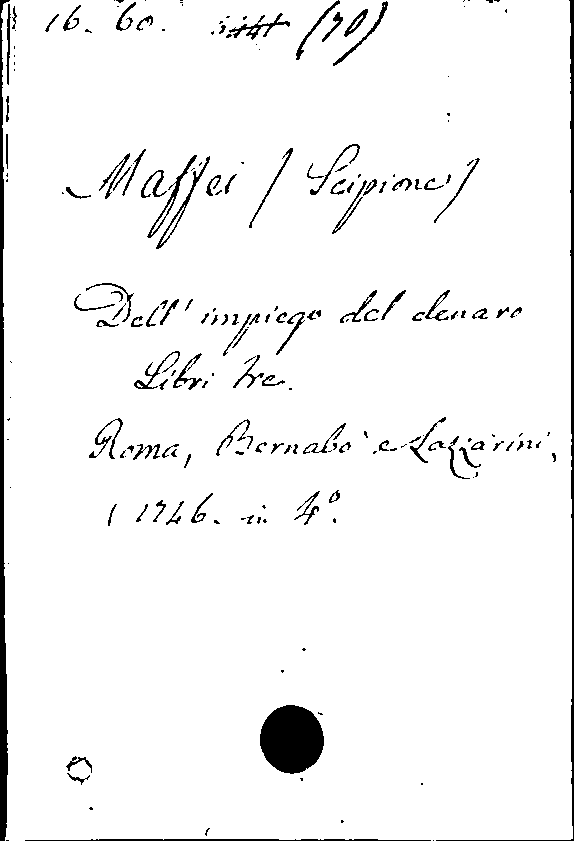 16. 60. (70)
Maffei / Scipione /
Dell' impiego del denaro
Libri tre.
Roma, Bernabò e Lazzarini,
1746. in 4º.